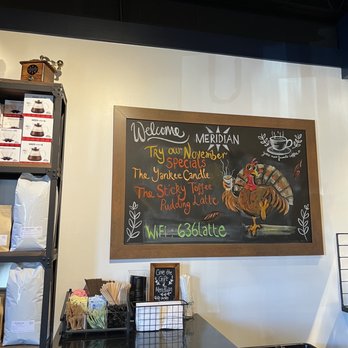 Welcome
MERIDIAN
Try our November
Specials
The Yankee Candle
The Sticky Toffee
Pudding Latte
WiFi: 636latte
Give the
Gift
Meridian